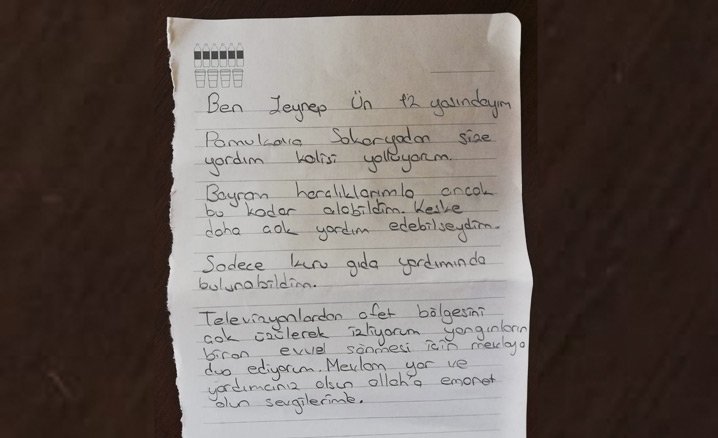 Ben Zeynep Ün 12 yaşındayım
Pamukova Sakaryadan size
yardım kolisi yolluyorum.
Bayram harçlıklarımla ancak
bu kadar alabildim. Keşke
daha çok yardım edebilseydim.
Sadece kuru gıda yardımında
bulunabildim.
Televizyonlardan afet bölgesini
çok üzülerek izliyorum yangınların
biran evvel sönmesi için mevlaya
dua ediyorum. Mevlam yar ve
yardımcınız olsun allah'a emanet
olun sevgilerimle.